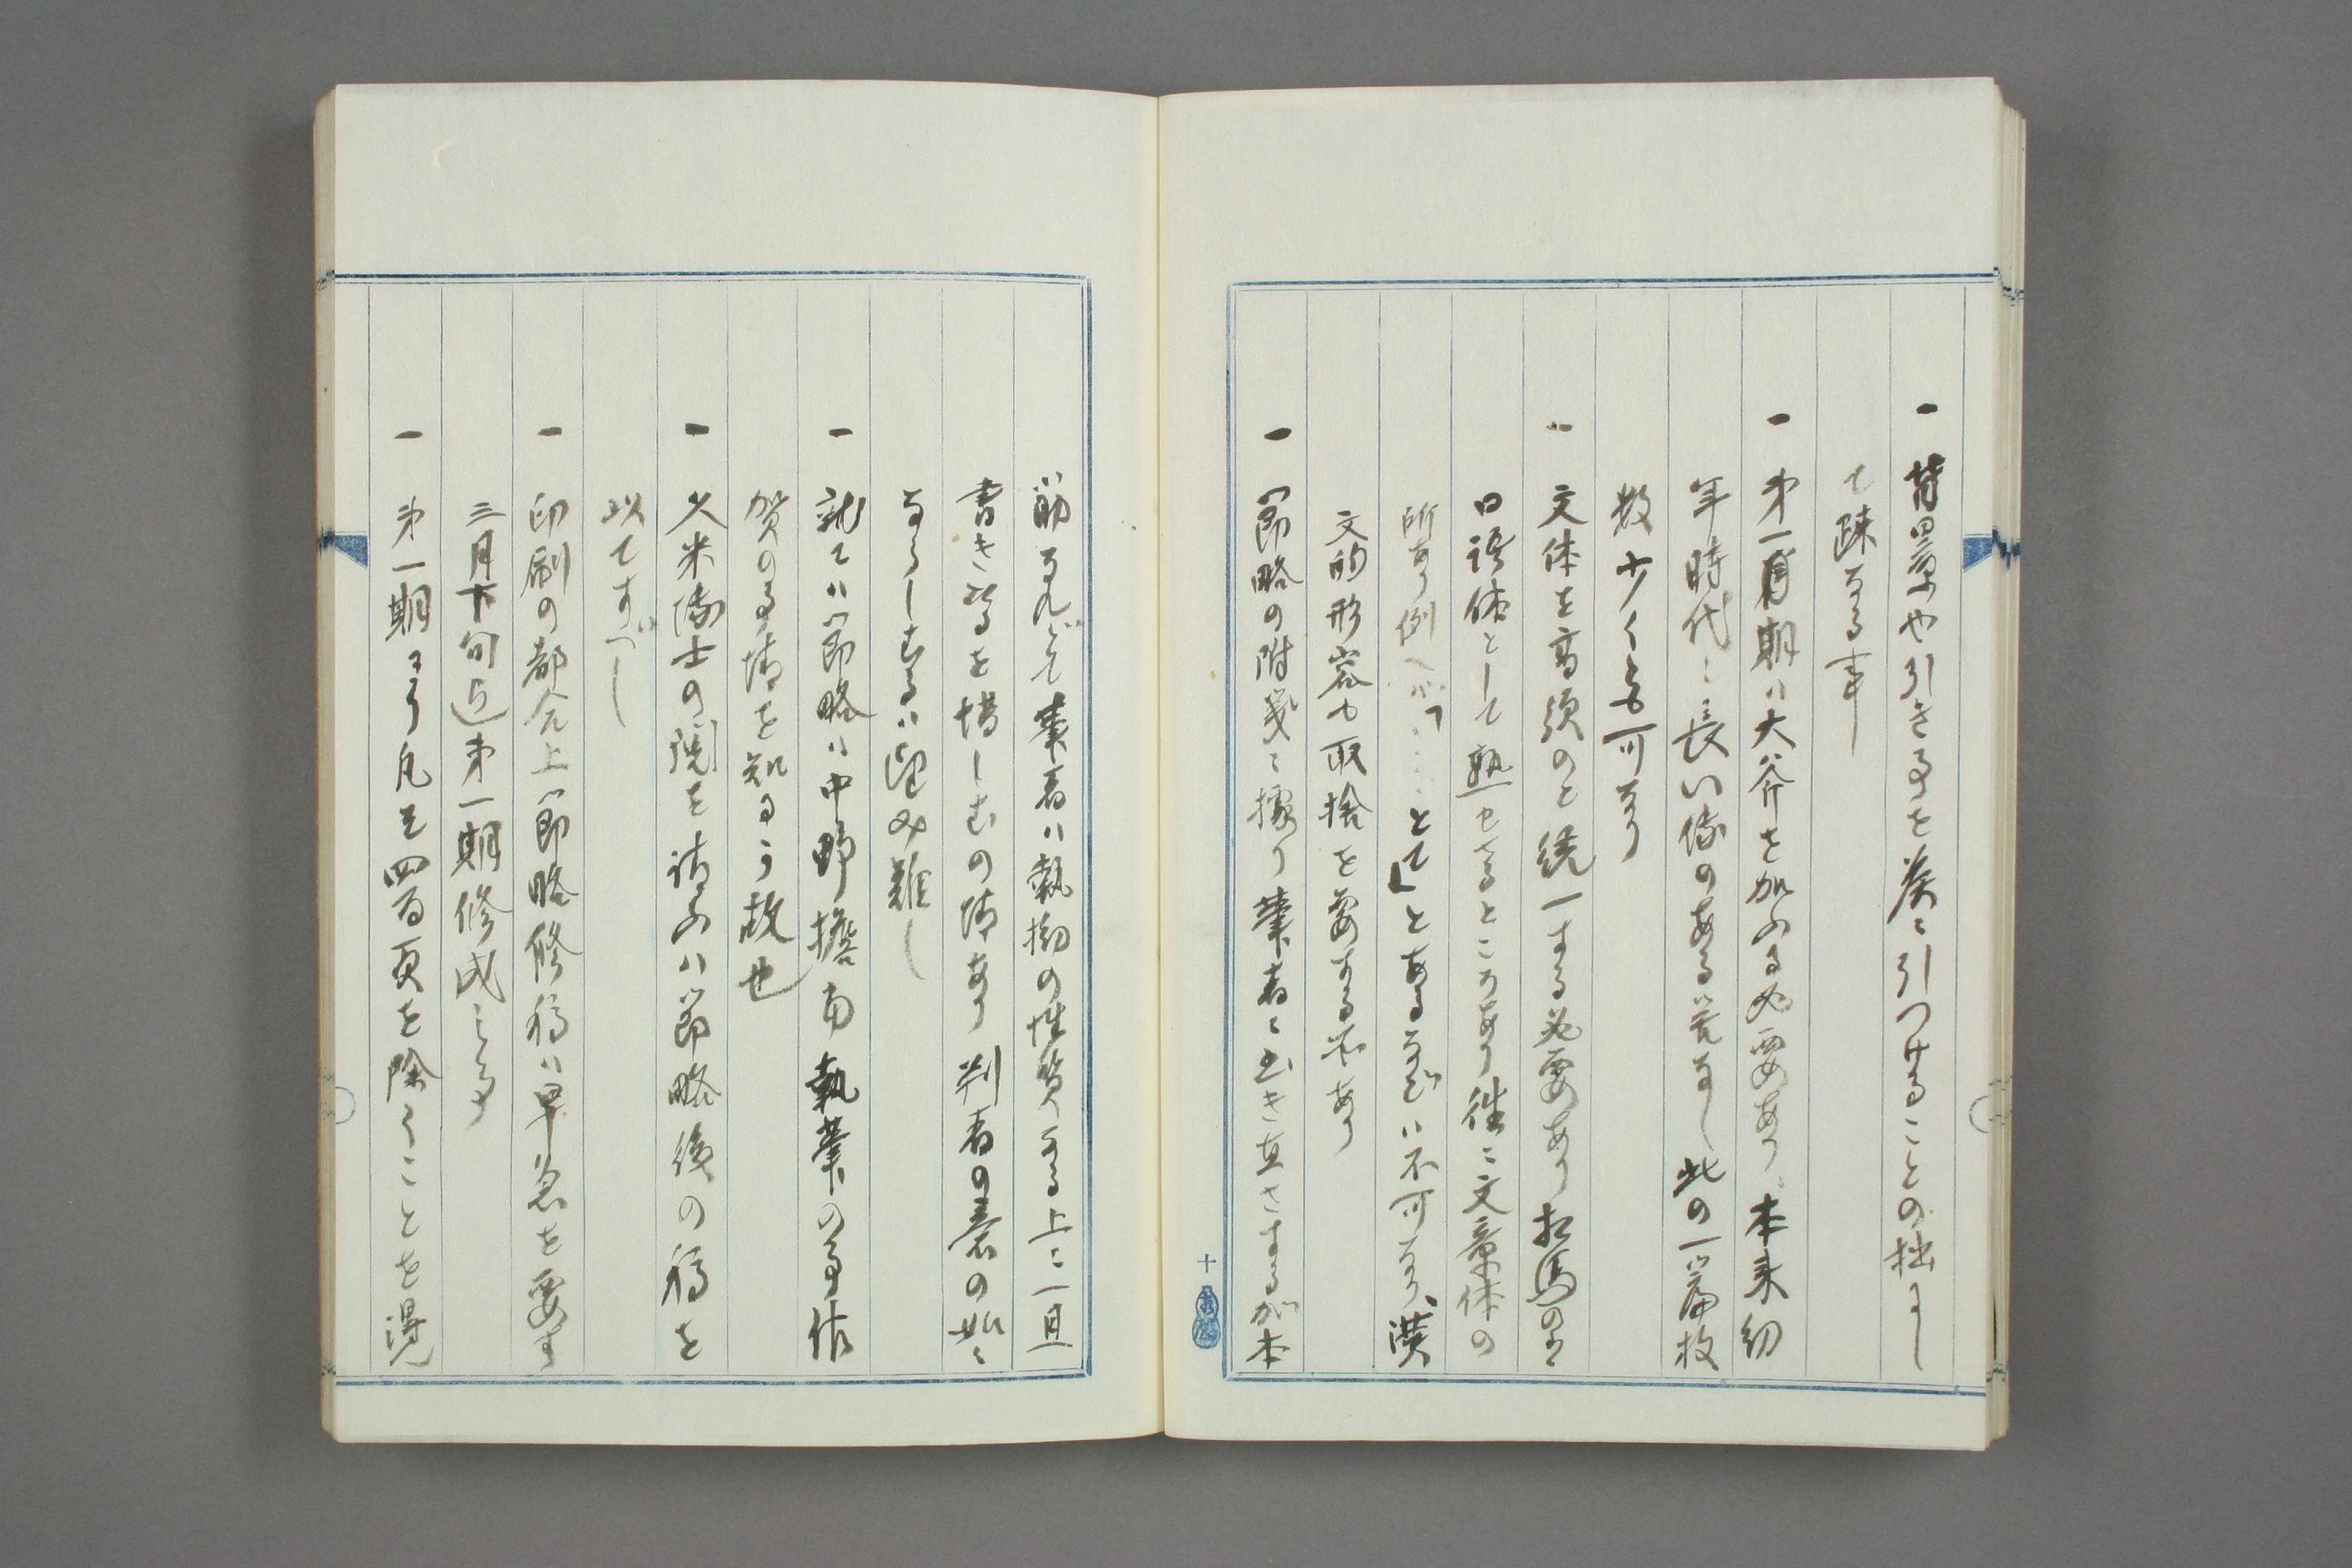 一 背景や引きるを巻に引つけることの拙にし
て疎なる事
一 第一首期ハ大斧を加ふる必要あり、本来幼
年時代に長い伝のある筈なし此の一篇枚
数少くとも可なり
一 文体を高須のと統一する必要あり相馬のは
口語体として熟せざるところあり往々文章体の
所あり例へバ「……とて」とあるなどハ不可なり、漢
文的形容も取捨を要する所あり
一 節略の附箋に據り筆者に書き直さするが本
筋なれど筆者ハ執拗の性質なる上に一旦
書きたるを惜しむの情あり判者の意の如く
ならしむるハ望み難し
一 就てハ節略ハ中野擔当執筆の事佐
賀の事情を知るう故也
一 久米博士の閲を請ふハ節略後の稿を
以てすべし
一 印刷の都合上節略修稿ハ早急を要す
三月下旬迄第一期修成之事
一 第一期より凡そ四百頁を除くことを得